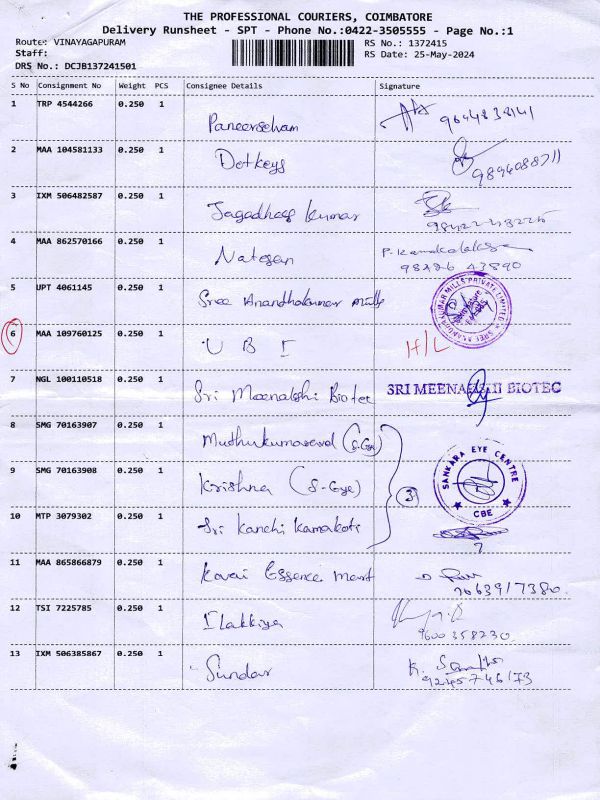 THE PROFESSIONAL COURIERS, COIMBATORE
Delivery Runsheet - SPT - Phone No.:0422-3505555 - Page No.:1
Route: VINAYAGAPURAM RS No.: 1372415
Staff: RS Date: 25-May-2024
DRS No.: DCJB137241501
S No Consignment No Weight PCS Consignee Details Signature
1 TRP 4544266 0.250 1 Paneerselvam
2 MAA 104581133 0.250 1 Dotkeys
3 IXM 506482587 0.250 1 Jagadhees Kumar
4 MAA 862570166 0.250 1 Natesan
5 UPT 4061145 0.250 1 Sree Anandhakumar mills
6 MAA 109760125 0.250 1 U B I H/L
7 NGL 100110518 0.250 1 Sri Meenakshi Biotec SRI MEENAKSHI BIOTEC
8 SMG 70163907 0.250 1
9 SMG 70163908 0.250 1 Krishna (S-Eye) 3 SANKARA EYE CENTRE CBE
10 MTP 3079302 0.250 1 Sri Kanchi Kamakoti
11 MAA 865866879 0.250 1 Kovai Essence mart
12 TSI 7225785 0.250 1 Ilakkiya 9600358230
13 IXM 506385867 0.250 1 Sundar